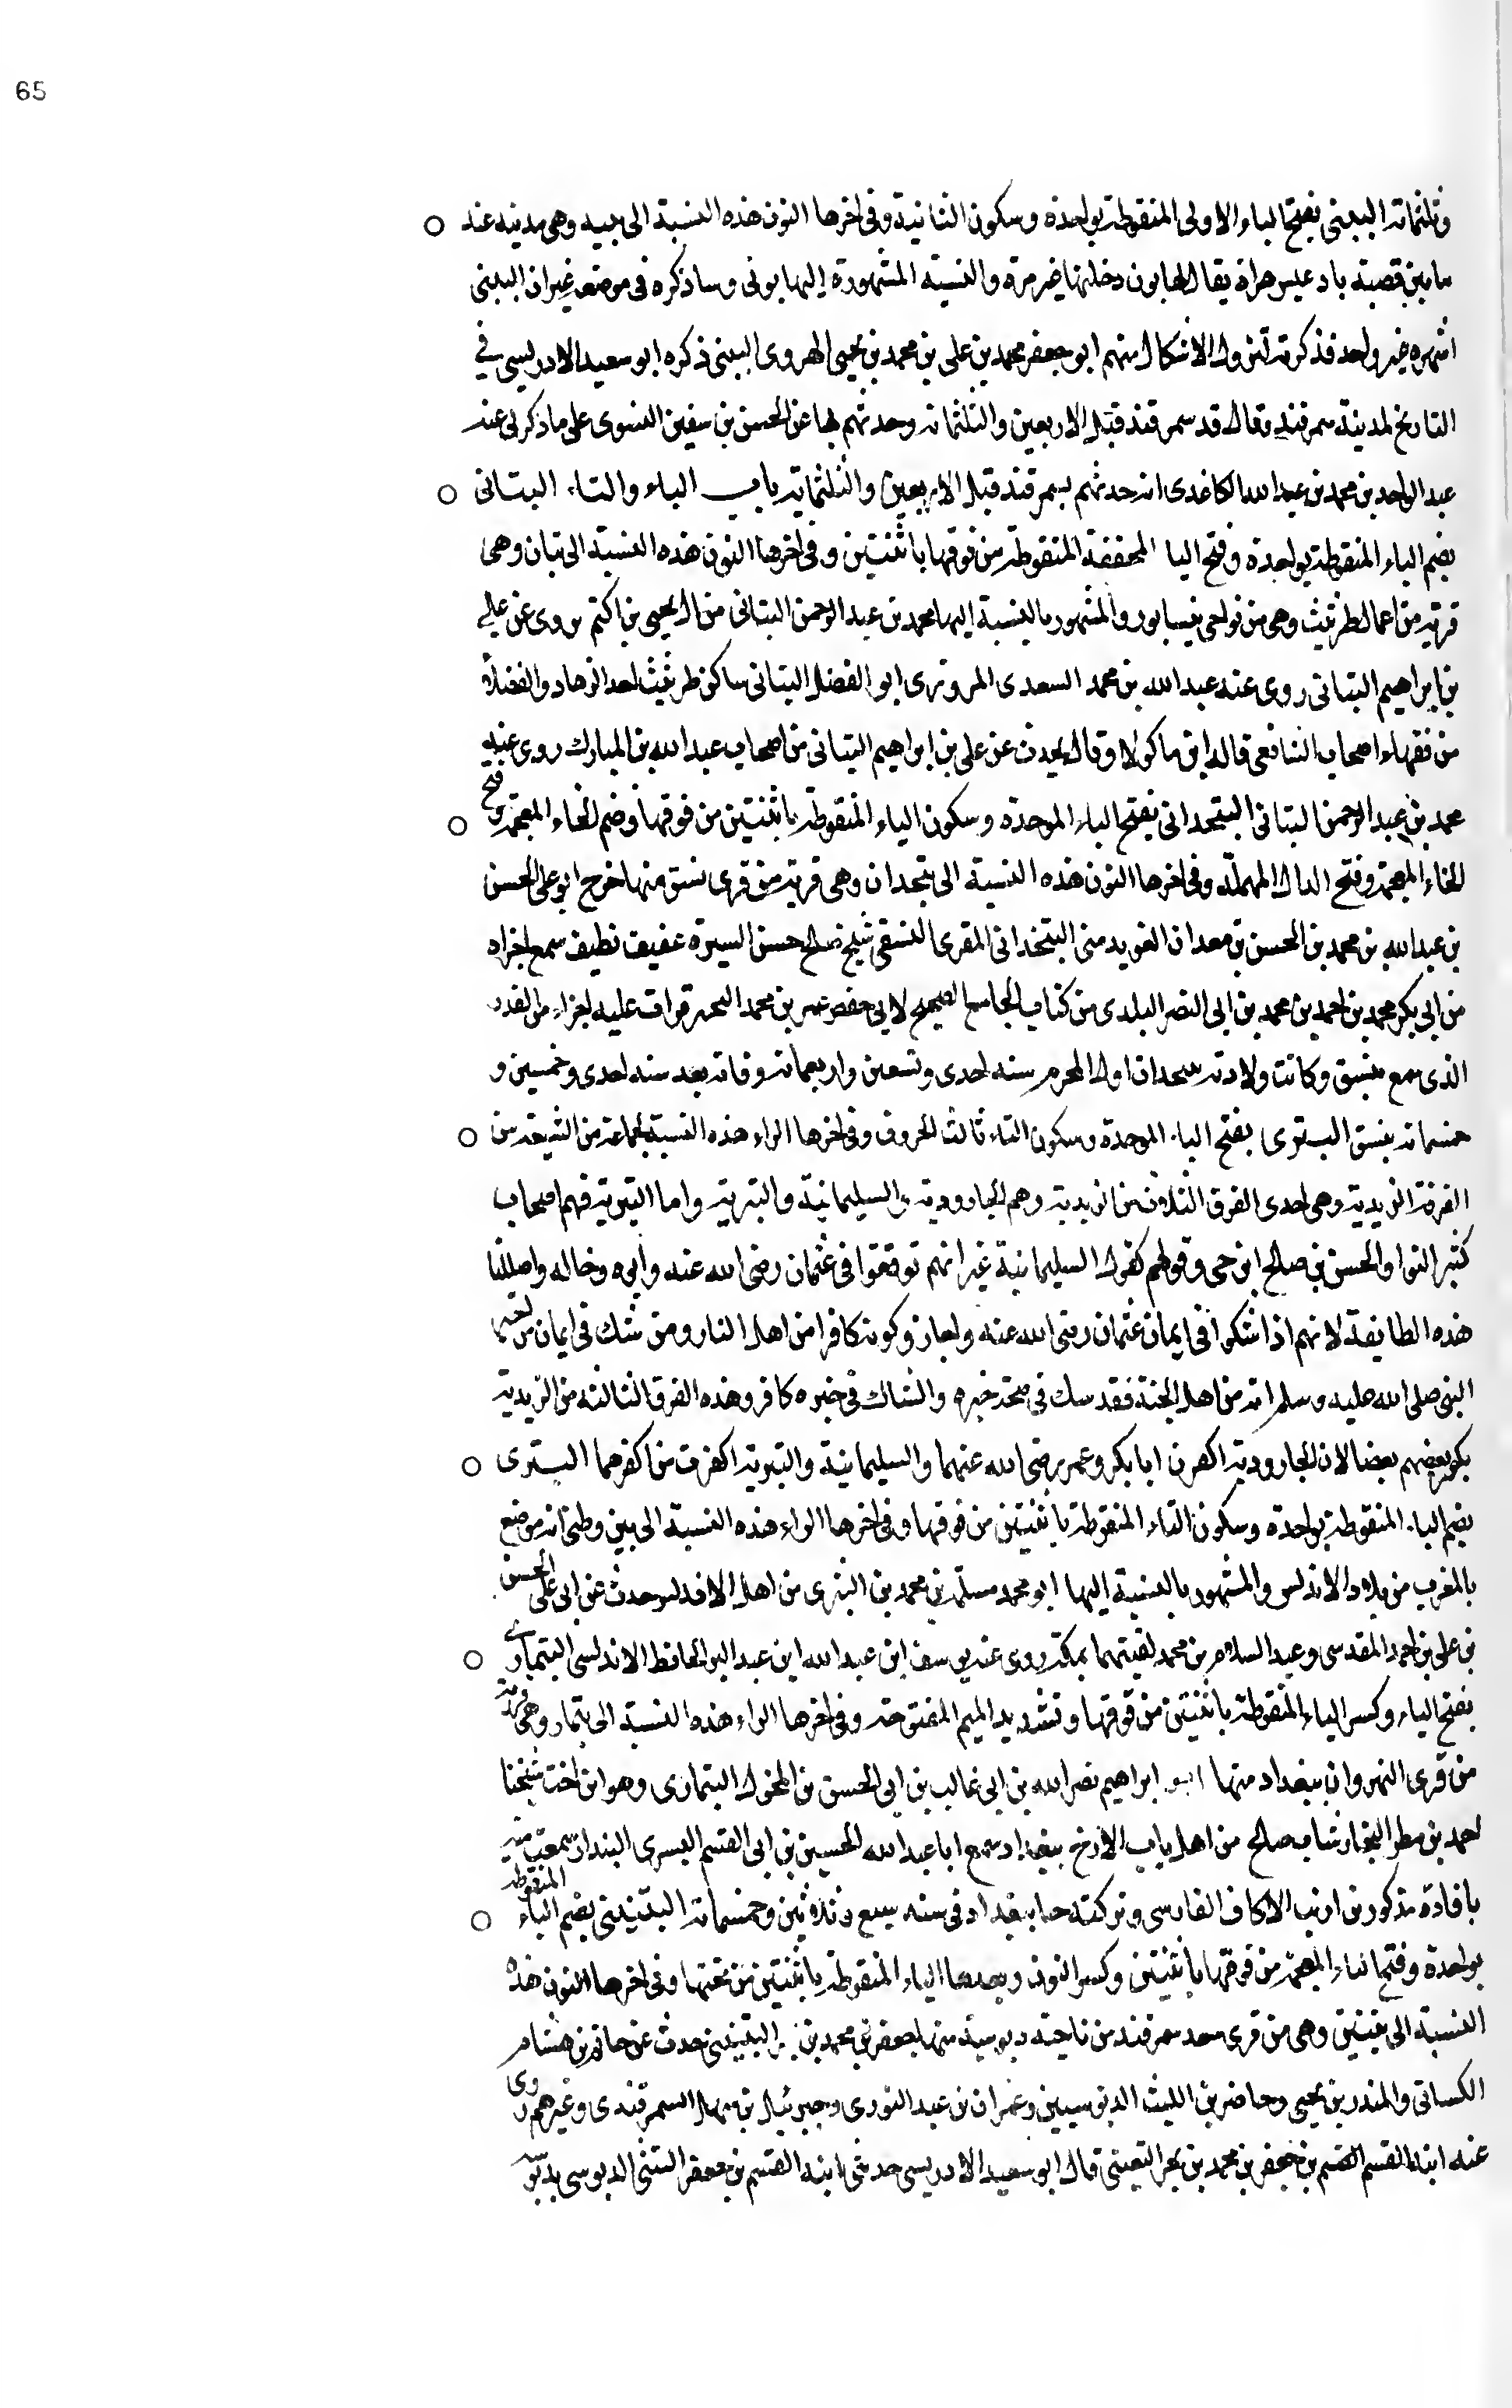 65
وثلثماته الببنى بفتح الباء الاولى المنقوطة بواحدة وسكون الثانية وفى اخرها النون هذه النسبة الى ببنه وهى مدينه عند
ما بين قصبة بادعيس هراة يقال لها بون دخلتها غير مرة والنسبة المشهورة اليها بونى وساذكره فى موضعه غير ان الببنى
اشهره غير واحد فذكرته لنزول الاشكال منهم ابو جعفر محمد بن على بن محمد بن يحيى الهروى الببنى ذكره ابو سعيد الادريسى في
التاريخ لمدينة سمرقند وقال قدم سمرقند قبل الاربعين والثلثماته وحدثهم بها عن الحسن بن سفين النسوى على ما ذكر لى عنه
عبد الواحد بن محمد بن عبد الله الكاغدى انه حدثهم بسمرقند قبل الاربعين والثلثماية باب الباء والتاء البتانى
بضم الباء المنقوطة بواحدة وفتح اليا المخففة المنقوطة من فوقها باثنتين وفى اخرها النون هذه النسبة الى بتان وهى
قرية من اعمال طرثيث وهى من نواحى نيسابور والمشهور بالنسبة اليها محمد بن عبد الرحمن البتانى من ال يحيى بن اكثم روى عن على
بن ابراهيم البتانى روى عنه عبد الله بن محمد السعدى المروزى ابو الفضل البتانى ساكن طرثيث احد الزهاد والفضلاء
من فقهاء اصحاب الشافعى قاله ابن ماكولا وقال يحدث عن على بن ابراهيم البتانى من اصحاب عبد الله بن المبارك روى عنه
محمد بن عبد الرحمن البتانى البتخدانى بفتح الباء الموحدة وسكون الياء المنقوطة باثنتين من فوقها وضم الخاء المعجمة وفتح
الخاء المعجمة وفتح الدال المهملة وفى اخرها النون هذه النسبة الى بتخدان وهى قرية من قرى نسق منها خرج ابو على الحسن
بن عبد الله بن محمد بن الحسن بن معدان الغويدمنى البتخدانى المقرى النسفى شيخ صالح حسن السيرة عفيف نظيف سمع اجزاء
من ابى بكر محمد بن احمد بن محمد بن ابى النضر البلدى من كتاب الجامع الصحيح لابى حفص عمر بن محمد البحيرى قرات عليه اجزاء من القدر
الذى سمع بنسق وكانت ولادته ببتخدان اول المحرم سنه احدى وتسعين واربعماته وفاته بعد سنه احدى وخمسين و
خمسماته بنسق البترى بفتح الباء الموحدة وسكون التاء ثالث الحروف وفى اخرها الراء هذه النسبة لجماعة من الشيعة من
الفرقة الزيدية وهى احدى الفرق الثلاث من الزيدية وهم الجارودية والسليمانية والبترية واما البترية فهم اصحاب
كثير النوا والحسن بن صالح ابن حى وقولهم كقول السليمانية غير انهم توقفوا فى عثمان رضى الله عنه
هذه الطايفة لانهم اذا شكوا فى ايمان عثمان رضى الله عنه واجازوا كونه كافرا من اهل النار ومن شك فى ايمان من اخبر
النبى صلى الله عليه وسلم انه من اهل الجنة فقد سك فى صحة خبره والشاك فى خبره كافر وهذه الفرق الثالثه من الزيدية
يكفر بعضهم بعضا لان الجارودية اكفرت ابا بكر وعمر رضى الله عنهما والسليمانية والبترية اكفرت من اكفرهما البترى
بضم الباء المنقوطة بواحدة وسكون التاء المنقوطة باثنتين من فوقها وفى اخرها الراء هذه النسبة الى بتر وظنى انه موضع
بالمغرب من بلاد الاندلس والمشهور بالنسبة اليها ابو محمد مسلمة بن محمد بن البترى من اهل الاندلس حدث عن ابى على الحسن
بن على بن احمد المقدسى وعبد السلام بن محمد لقيتهما بمكة روى عنه يوسف ابن عبد الله ابن عبد البر الحافظ الاندلسى البتمارى
بفتح الباء وكسر الياء المنقوطة باثنتين من فوقها وتشديد الميم المفتوحة وفى اخرها الراء هذه النسبة الى بتمار وهى قرية
من قرى النهروان ببغداد منها ابو ابراهيم نصر الله بن ابى غالب بن ابى الحسن بن البتمارى وهو ابن اخت شيخنا
احمد بن مطر النجار شاب صالح من اهل باب الازج ببغداد سمع ابا عبد الله الحسين بن ابى القسم البسرى البندار سمعت منه
بافادة مذكور بن ارنب الاكاف الفارسى وتركته حيا ببغداد فى سنه سبع وثلاثين وخمسماته البتنينى بضم الباء المنقوطة
بواحدة وفتح التاء المعجمة من فوقها باثنتين وكسر النون وبعدها الياء المنقوطة باثنتين من تحتها وفى اخرها النون هذه
النسبة الى بتنين وهى من قرى سغد سمرقند من ناحية دبوسية منها جعفر بن محمد بن بحر البتنينى حدث عن حاتم بن هشام
الكسائى والمنذر بن يحيى وحاضر بن الليث الدبوسيين وعمران بن عبد النورى وجبرئيل بن سهل السمرقندى وغيرهم روى
عنه ابنه القسم القسم بن جعفر بن محمد بن بحر البتنينى قال ابو سعيد الادريسى حدثنى ابنه القسم بن جعفر البتنينى الدبوسى بدبوسيه